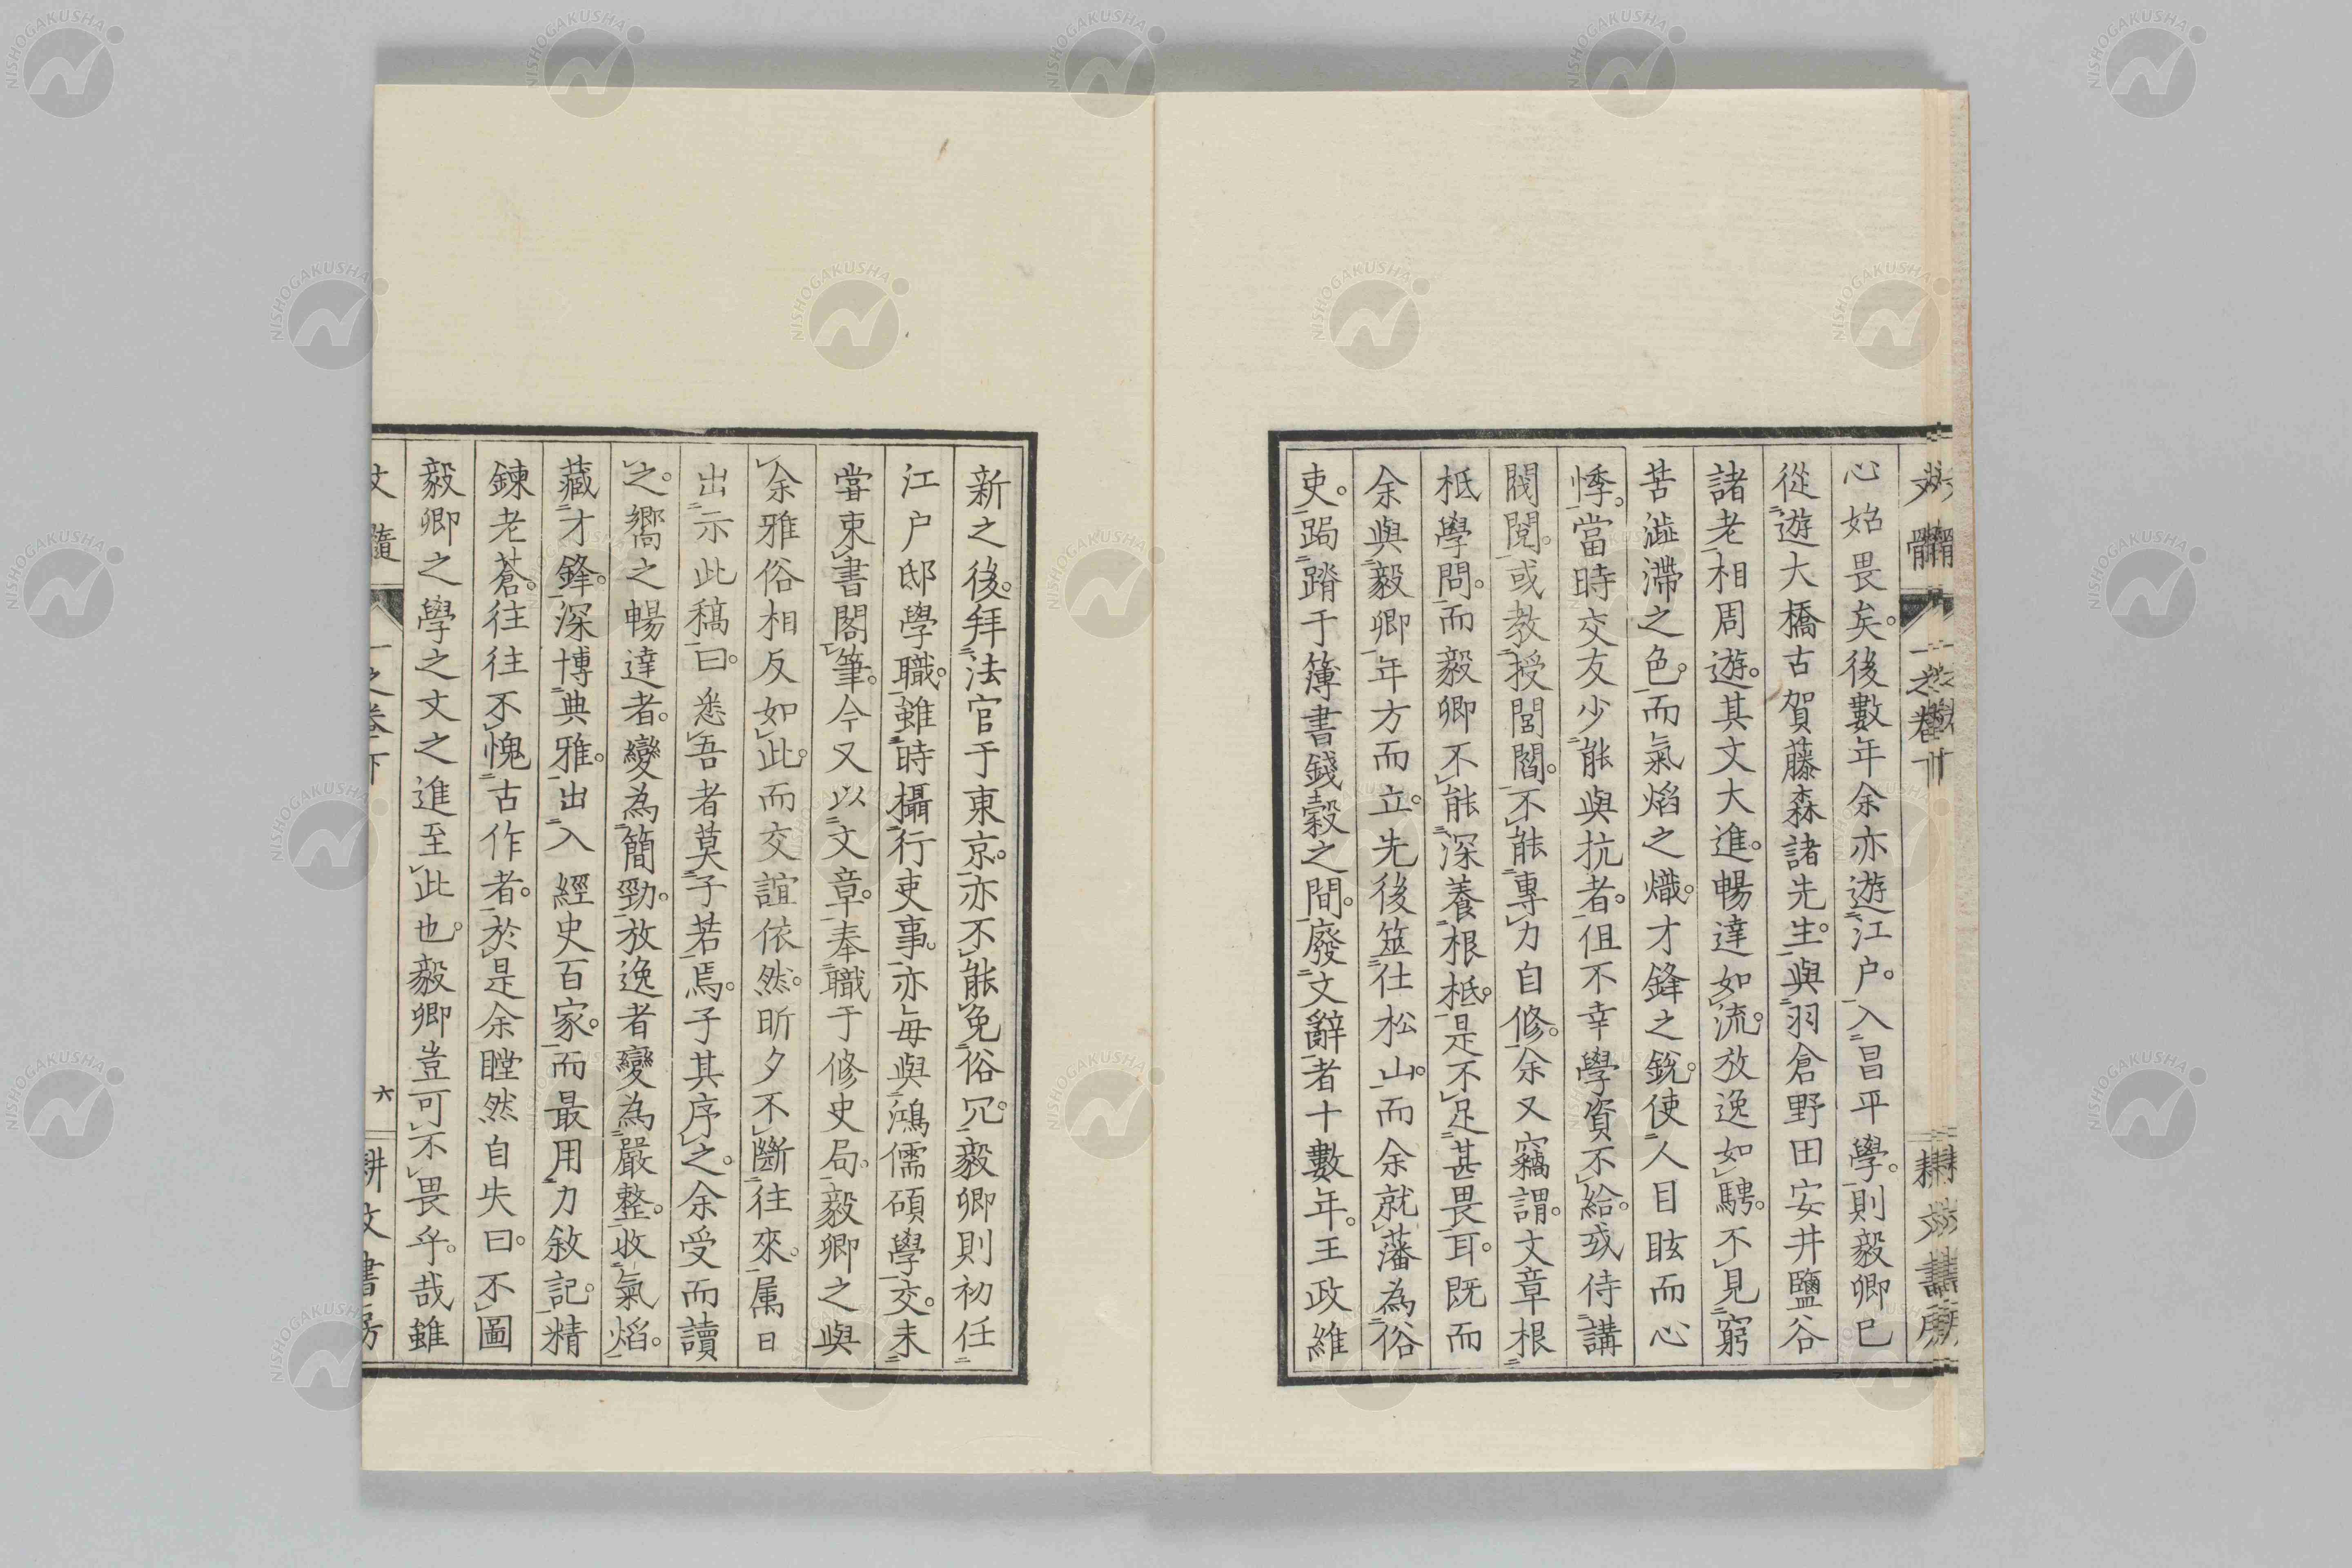 心始畏矣。後數年余亦遊江户。入昌平學。則毅卿已
從遊大橋古賀藤森諸先生。與羽倉野田安井鹽谷
諸老相周遊。其文大進。暢達如流。放逸如騁。不見窮
苦澁滯之色。而氣焰之熾。才鋒之銳。使人目眩而心
悸。當時交友少能與抗者。但不幸學資不給。或侍講
閥閱。或教授閭閻。不能專力自修。余又竊謂。文章根
柢學問。而毅卿不能深養根柢。是不足甚畏耳。既而
余與毅卿年方而立。先後筮仕松山。而余就藩為俗
吏。跼蹐于簿書錢穀之間。廢文辭者十數年。王政維
新之後。拜法官于東京。亦不能免俗冗。毅卿則初任
江户邸學職。雖時攝行吏事。亦每與鴻儒碩學交。未
甞束書閣筆。今又以文章。奉職于修史局。毅卿之與
余雅俗相反如此。而交誼依然。昕夕不斷往來。属日
出示此稿曰。悉吾者莫子若焉。子其序之。余受而讀
之。嚮之暢達者。變為簡勁。放逸者變為嚴整。收氣焰。
藏才鋒。深博典雅。出入經史百家。而最用力敘記。精
鍊老蒼。往往不愧古作者。於是余瞠然自失曰。不圖
毅卿之學之文之進至此也。毅卿豈可不畏乎哉雖
文髓
一之卷下
六
耕文書房